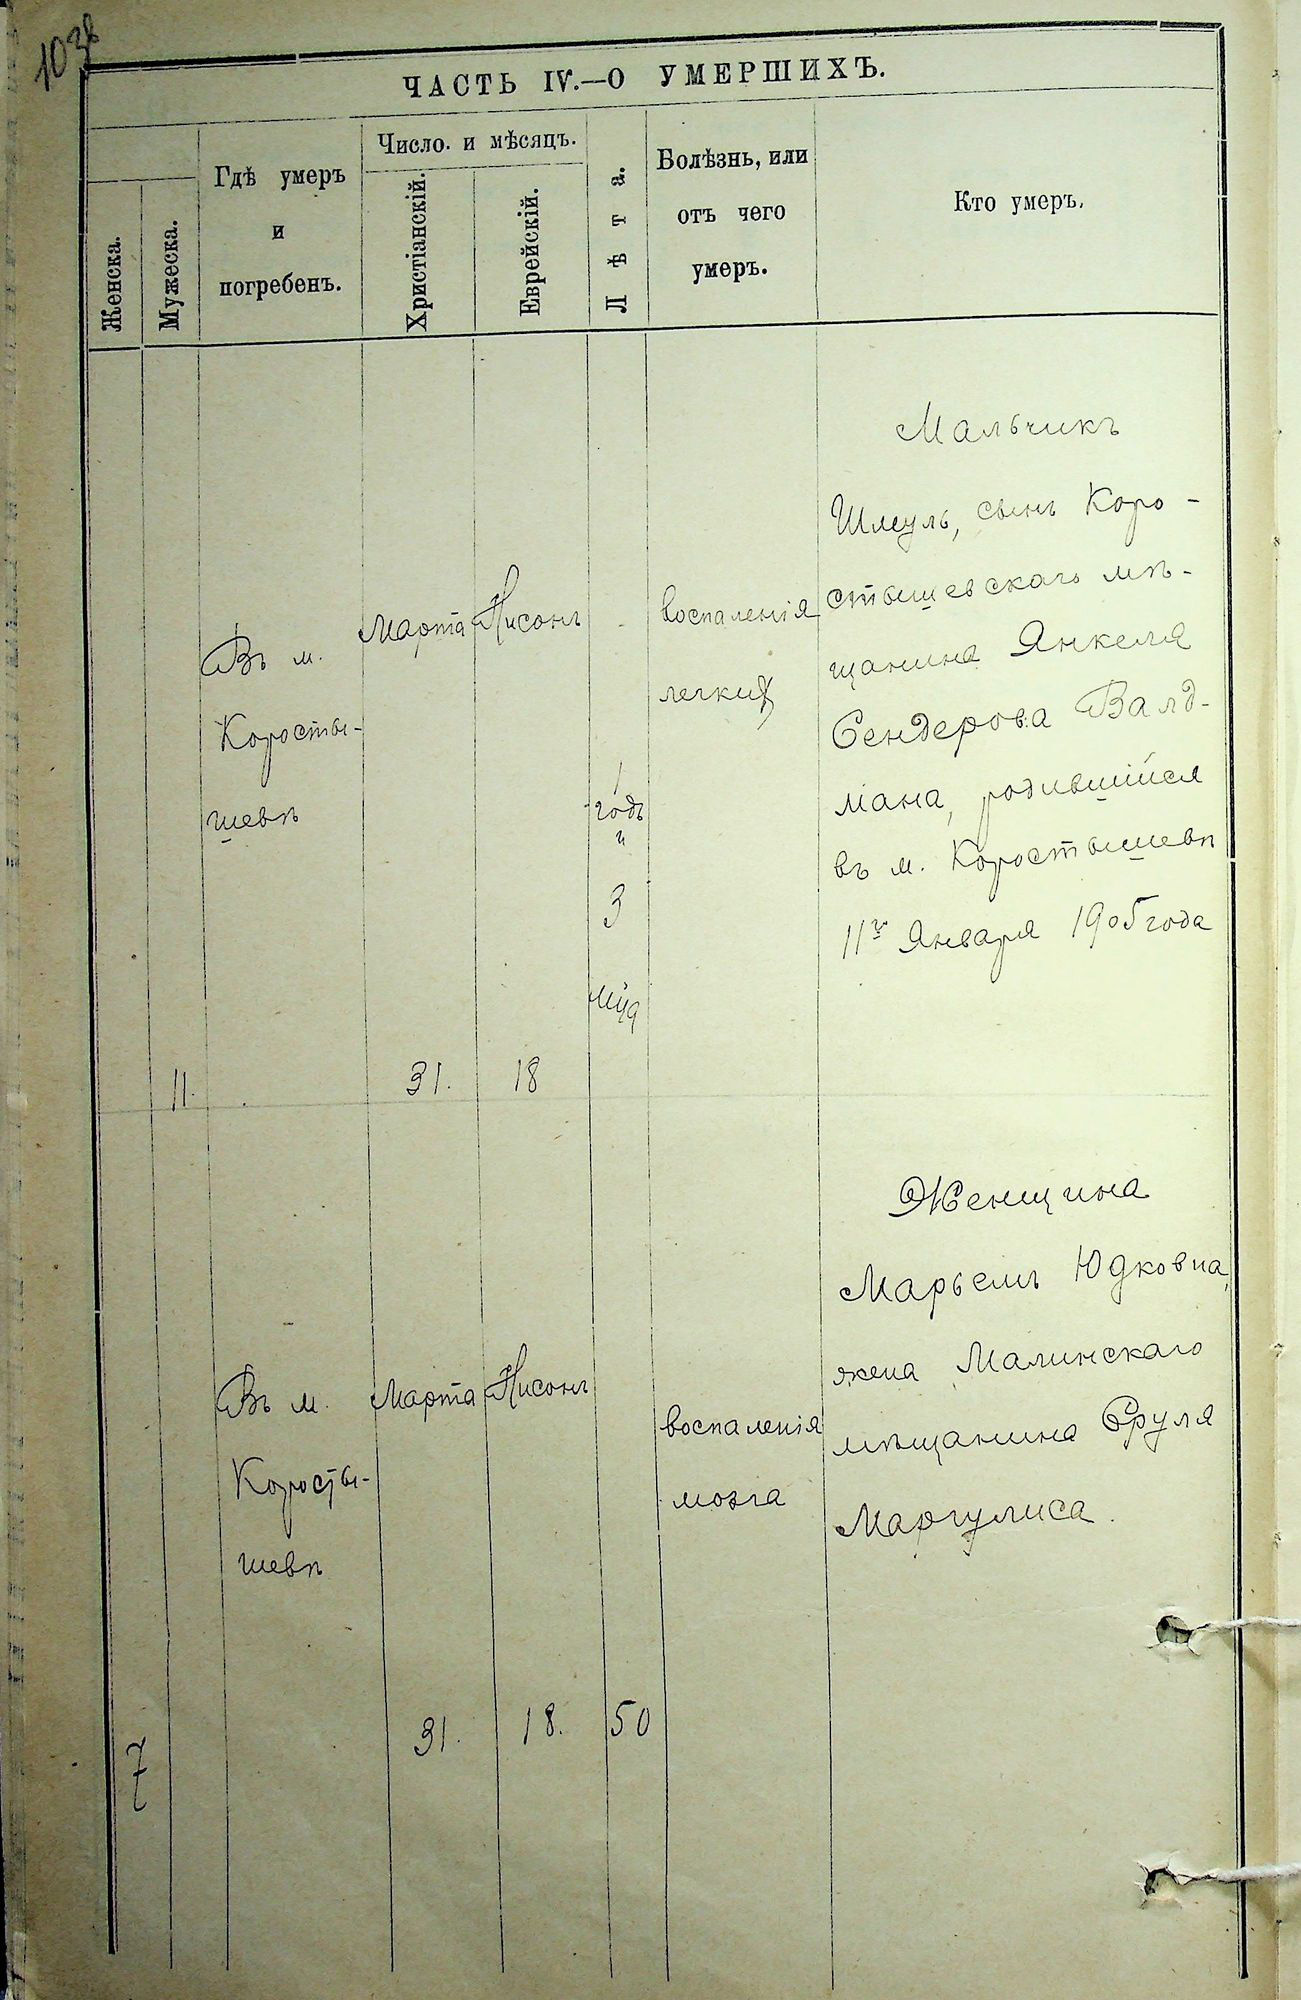 1038
ЧАСТЬ IV.—О УМЕРШИХЪ.
Женска.
Мужеска.
Гдѣ умеръ
и
погребенъ.
Число и мѣсяцъ.
Христіанскій.
Еврейскій.
Лѣта.
Болѣзнь, или
отъ чего
умеръ.
Кто умеръ.
11.
Въ м.
Коросты-
шевѣ
Марта
31.
Нисонъ
18
1
годъ
и
3
мца
воспаленія
легких
Мальчикъ
Шмуль, сынъ Коро-
стышевскаго мѣ-
щанина Янкеля
Сендерова Валд-
мана, родившійся
въ м. Коростышевѣ
11го Января 1905 года
7
Въ м.
Коросты-
шевѣ
Марта
31.
Нисонъ
18.
50
воспаленія
мозга
Женщина
Марьемъ Юдковна,
жена Малинскаго
мѣщанина Сруля
Маргулиса.